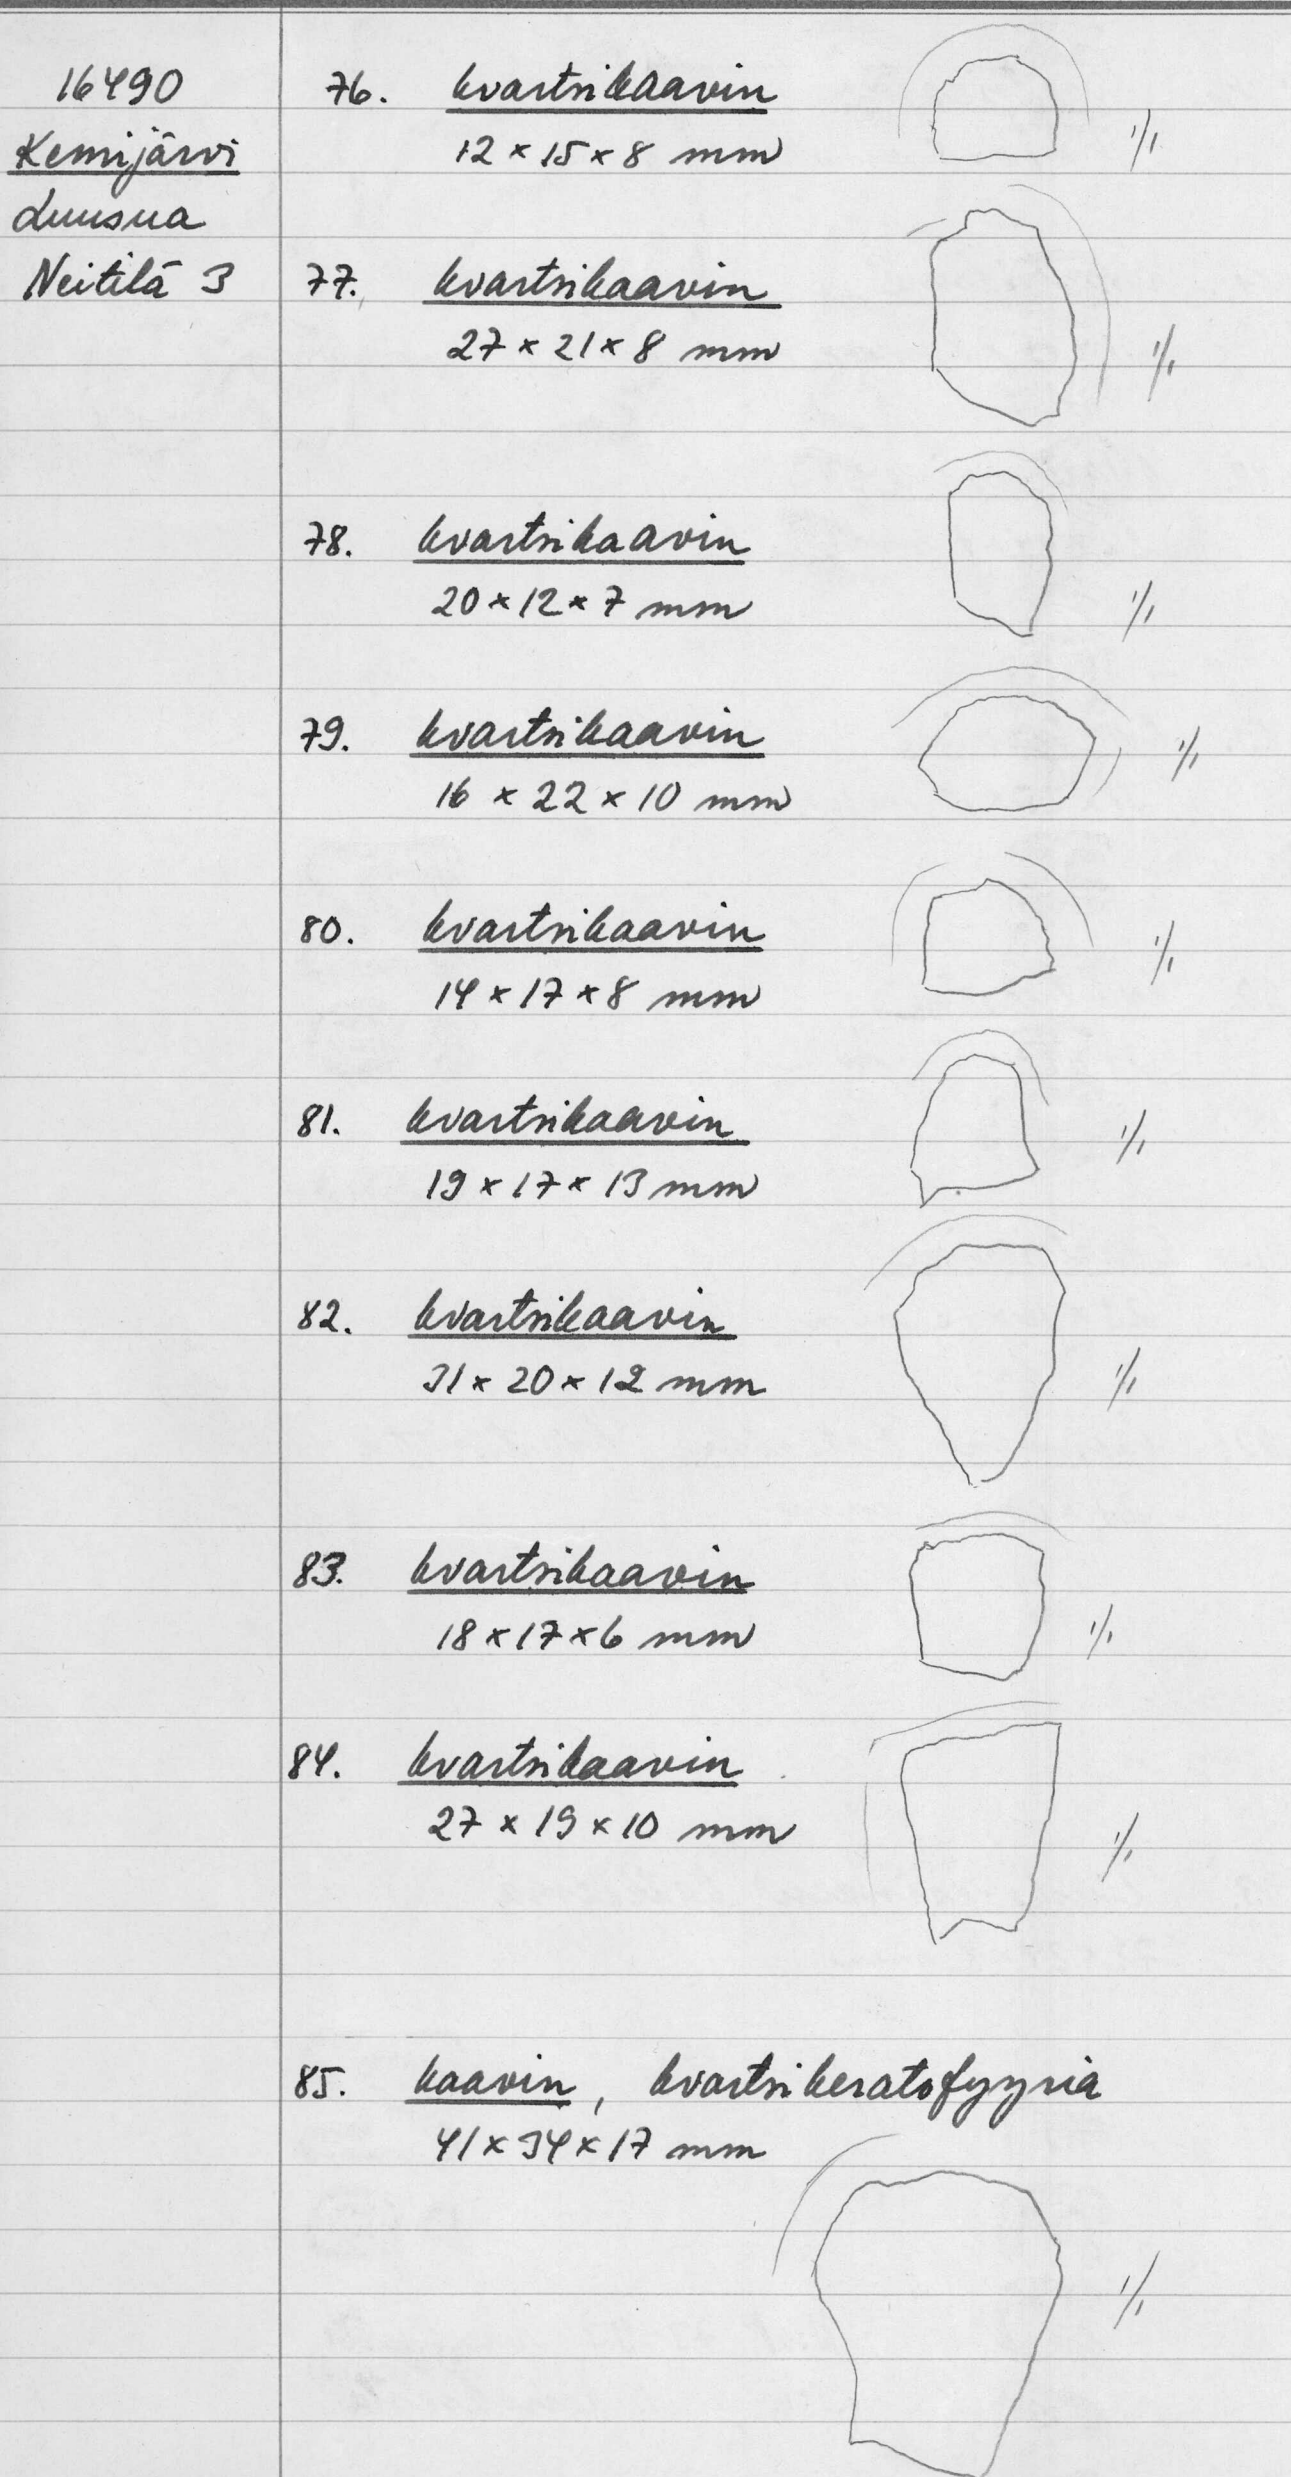 16490
Kemijärvi
Luusua
Neitilä 3
76. kvartsikaavin
12 × 15 × 8 mm
1/1
77. kvartsikaavin
27 × 21 × 8 mm
1/1
78. kvartsikaavin
20 × 12 × 7 mm
1/1
79. kvartsikaavin
16 × 22 × 10 mm
1/1
80. kvartsikaavin
14 × 17 × 8 mm
1/1
81. kvartsikaavin
19 × 17 × 13 mm
1/1
82. kvartsikaavin
31 × 20 × 12 mm
1/1
83. kvartsikaavin
18 × 17 × 6 mm
1/1
84. kvartsikaavin
27 × 19 × 10 mm
1/1
85. kaavin, kvartsikeratofyyriä
41 × 34 × 17 mm
1/1